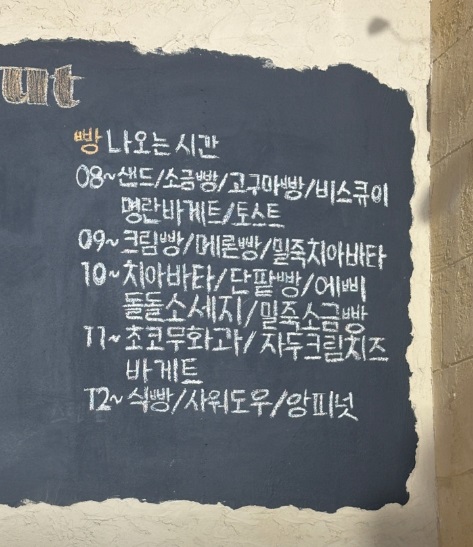 ut
빵 나오는 시간
08~샌드/소금빵/고구마빵/비스큐이
명란바게트/토스트
09~크림빵/메론빵/밀죽치아바타
10~치아바타/단팥빵/에삐
돌돌소세지/밀죽소금빵
11~초코무화과/자두크림치즈
바게트
12~식빵/사워도우/앙피넛